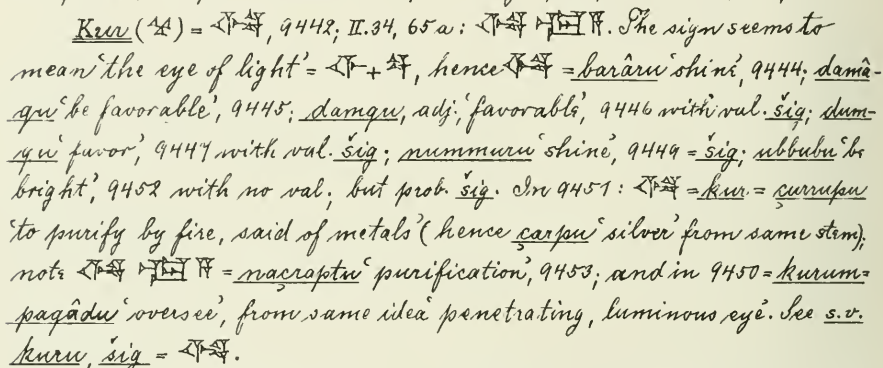 Kur (𒆳) = 𒅆𒂟, 9442; II. 34, 65 a: 𒅆𒂟 𒂷 𒀀. The sign seems to
mean ‘the eye of light’ = 𒅆 + 𒂟, hence 𒅆𒂟 = barâru ‘shine’, 9444; damâ-
qu ‘be favorable’, 9445; damqu, adj., ‘favorable’, 9446 with val. šig; dum-
qu ‘favor’, 9447 with val. šig; nummuru ‘shine’, 9449 = šig; ubbubu ‘be
bright’, 9452 with no val; but prob. šig. In 9451: 𒅆𒂟 = kur = çurrupu
‘to purify by fire, said of metals’ (hence çarpu ‘silver’ from same stem);
note 𒅆𒂟 𒂷 𒀀 = naçraptu ‘purification’, 9453; and in 9450 = kurum =
paqâdu ‘oversee’, from same idea ‘penetrating, luminous eye’. See s.v.
kuru, šig = 𒅆𒂟.